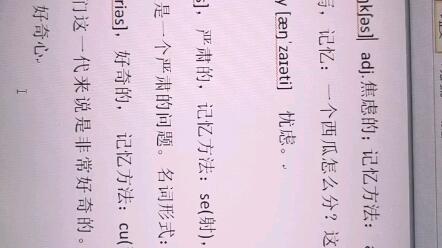 ŋkʃəs] adj.焦虑的；记忆方法：
，记忆：一个西瓜怎么分？这
y [æŋˈzaɪəti] 忧虑。
s]，严肃的，记忆方法：se(射)，
是一个严肃的问题。名词形式：
riəs]，好奇的，记忆方法：cu(
们这一代来说是非常好奇的。
好奇心